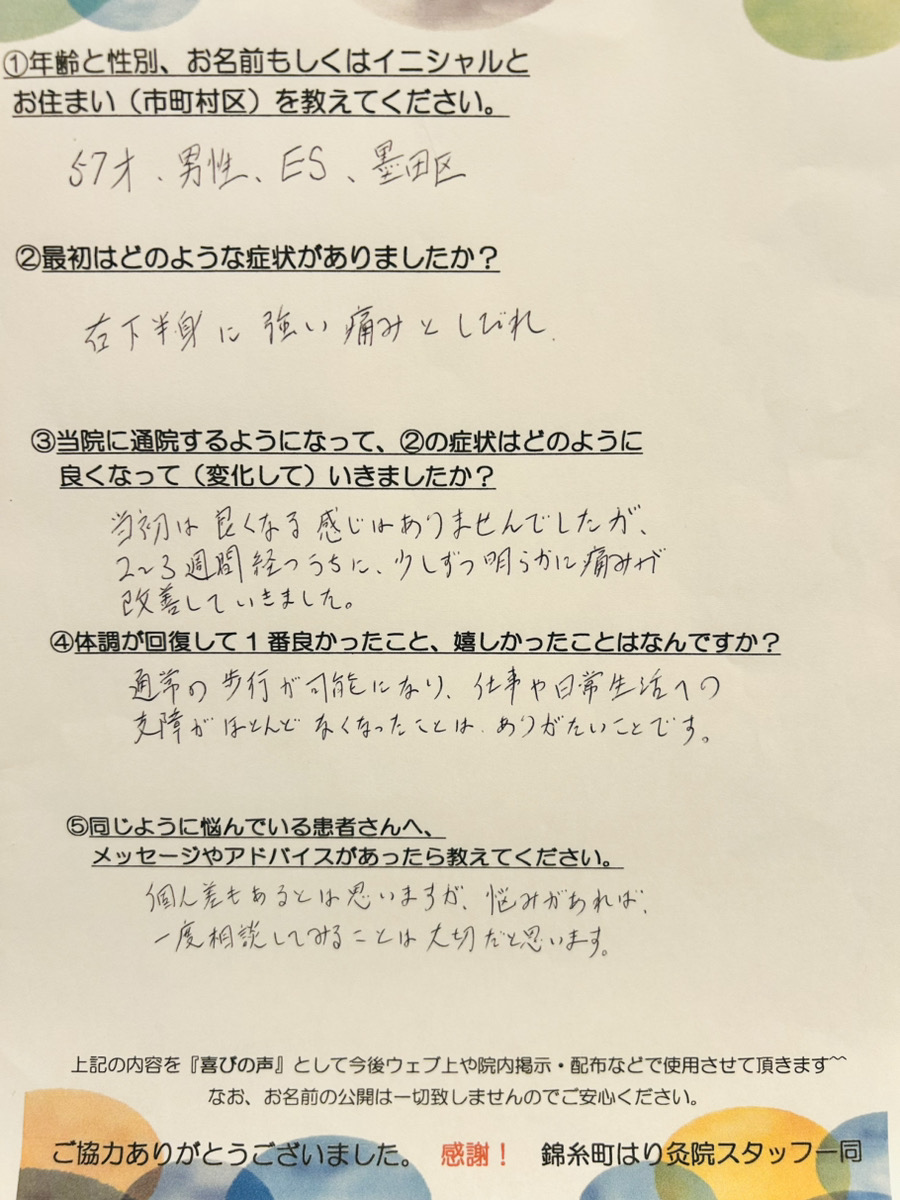 ①年齢と性別、お名前もしくはイニシャルと
お住まい（市町村区）を教えてください。
57才、男性、ES、墨田区
②最初はどのような症状がありましたか？
右下半身に強い痛みとしびれ.
③当院に通院するようになって、②の症状はどのように
良くなって（変化して）いきましたか？
当初は良くなる感じはありませんでしたが、
2～3週間経つうちに、少しずつ明らかに痛みが
改善していきました。
④体調が回復して1番良かったこと、嬉しかったことはなんですか？
通常の歩行が可能になり、仕事や日常生活への
支障がほとんどなくなったことは、ありがたいことです。
⑤同じように悩んでいる患者さんへ、
メッセージやアドバイスがあったら教えてください。
個人差もあるとは思いますが、悩みがあれば、
一度相談してみることは大切だと思います。
上記の内容を『喜びの声』として今後ウェブ上や院内掲示・配布などで使用させて頂きます^^
なお、お名前の公開は一切致しませんのでご安心ください。
ご協力ありがとうございました。 感謝！ 錦糸町はり灸院スタッフ一同